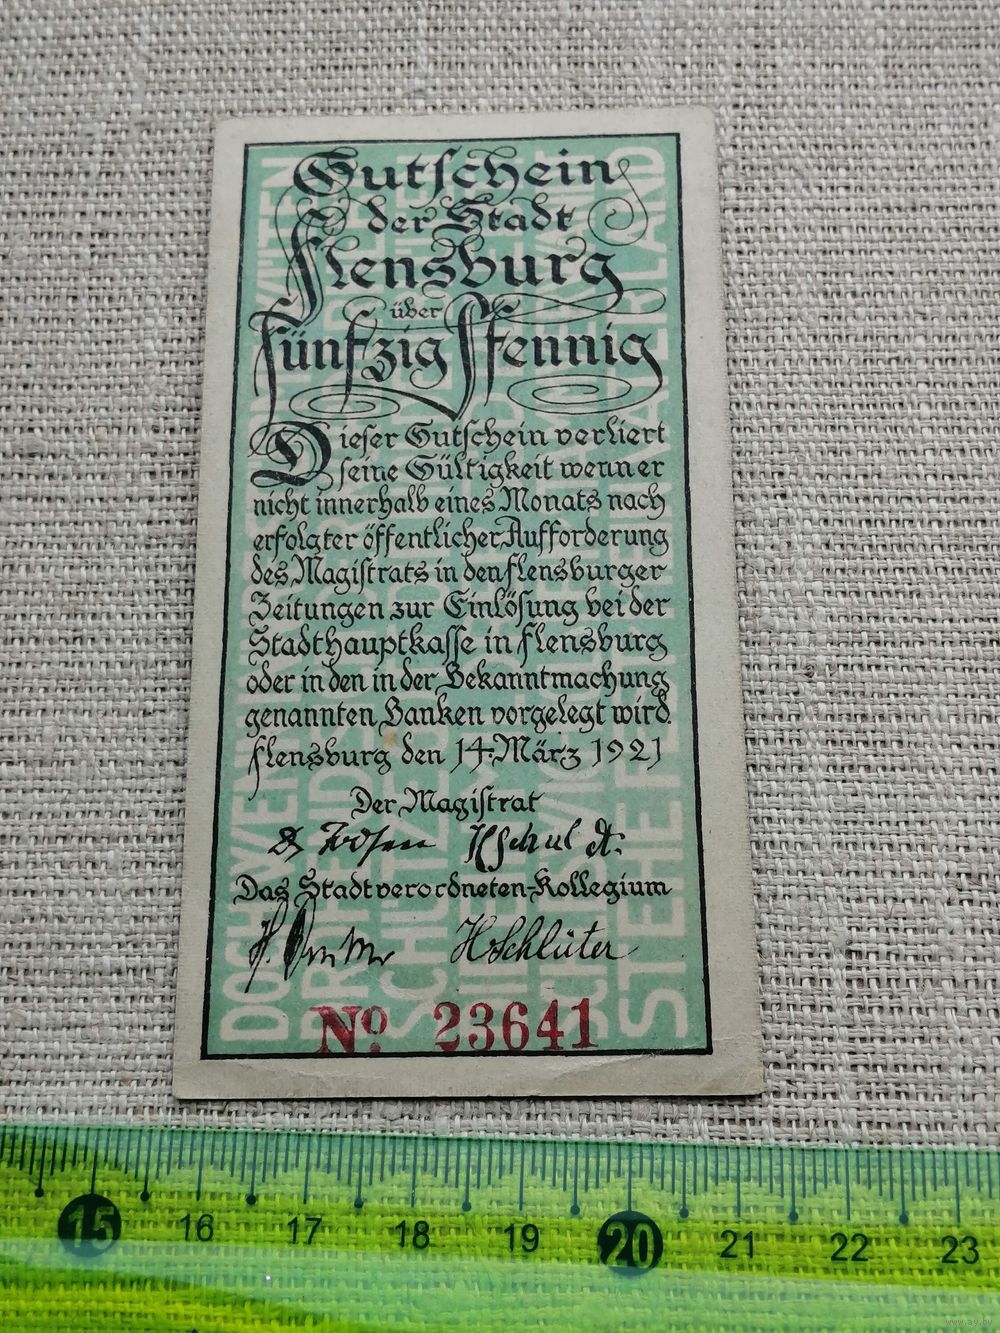 Gutschein
der Stadt
Flensburg
über
fünfzig Pfennig
Dieser Gutschein verliert
seine Gültigkeit wenn er
nicht innerhalb eines Monats nach
erfolgter öffentlicher Aufforderung
des Magistrats in den Flensburger
Zeitungen zur Einlösung bei der
Stadthauptkasse in Flensburg
oder in den in der Bekanntmachung
genannten Banken vorgelegt wird.
Flensburg den 14. März 1921
Der Magistrat
Das Stadtverordneten-Kollegium
HSchlüter
No. 23641
15 16 17 18 19 20 21 22 23
www.ay.by